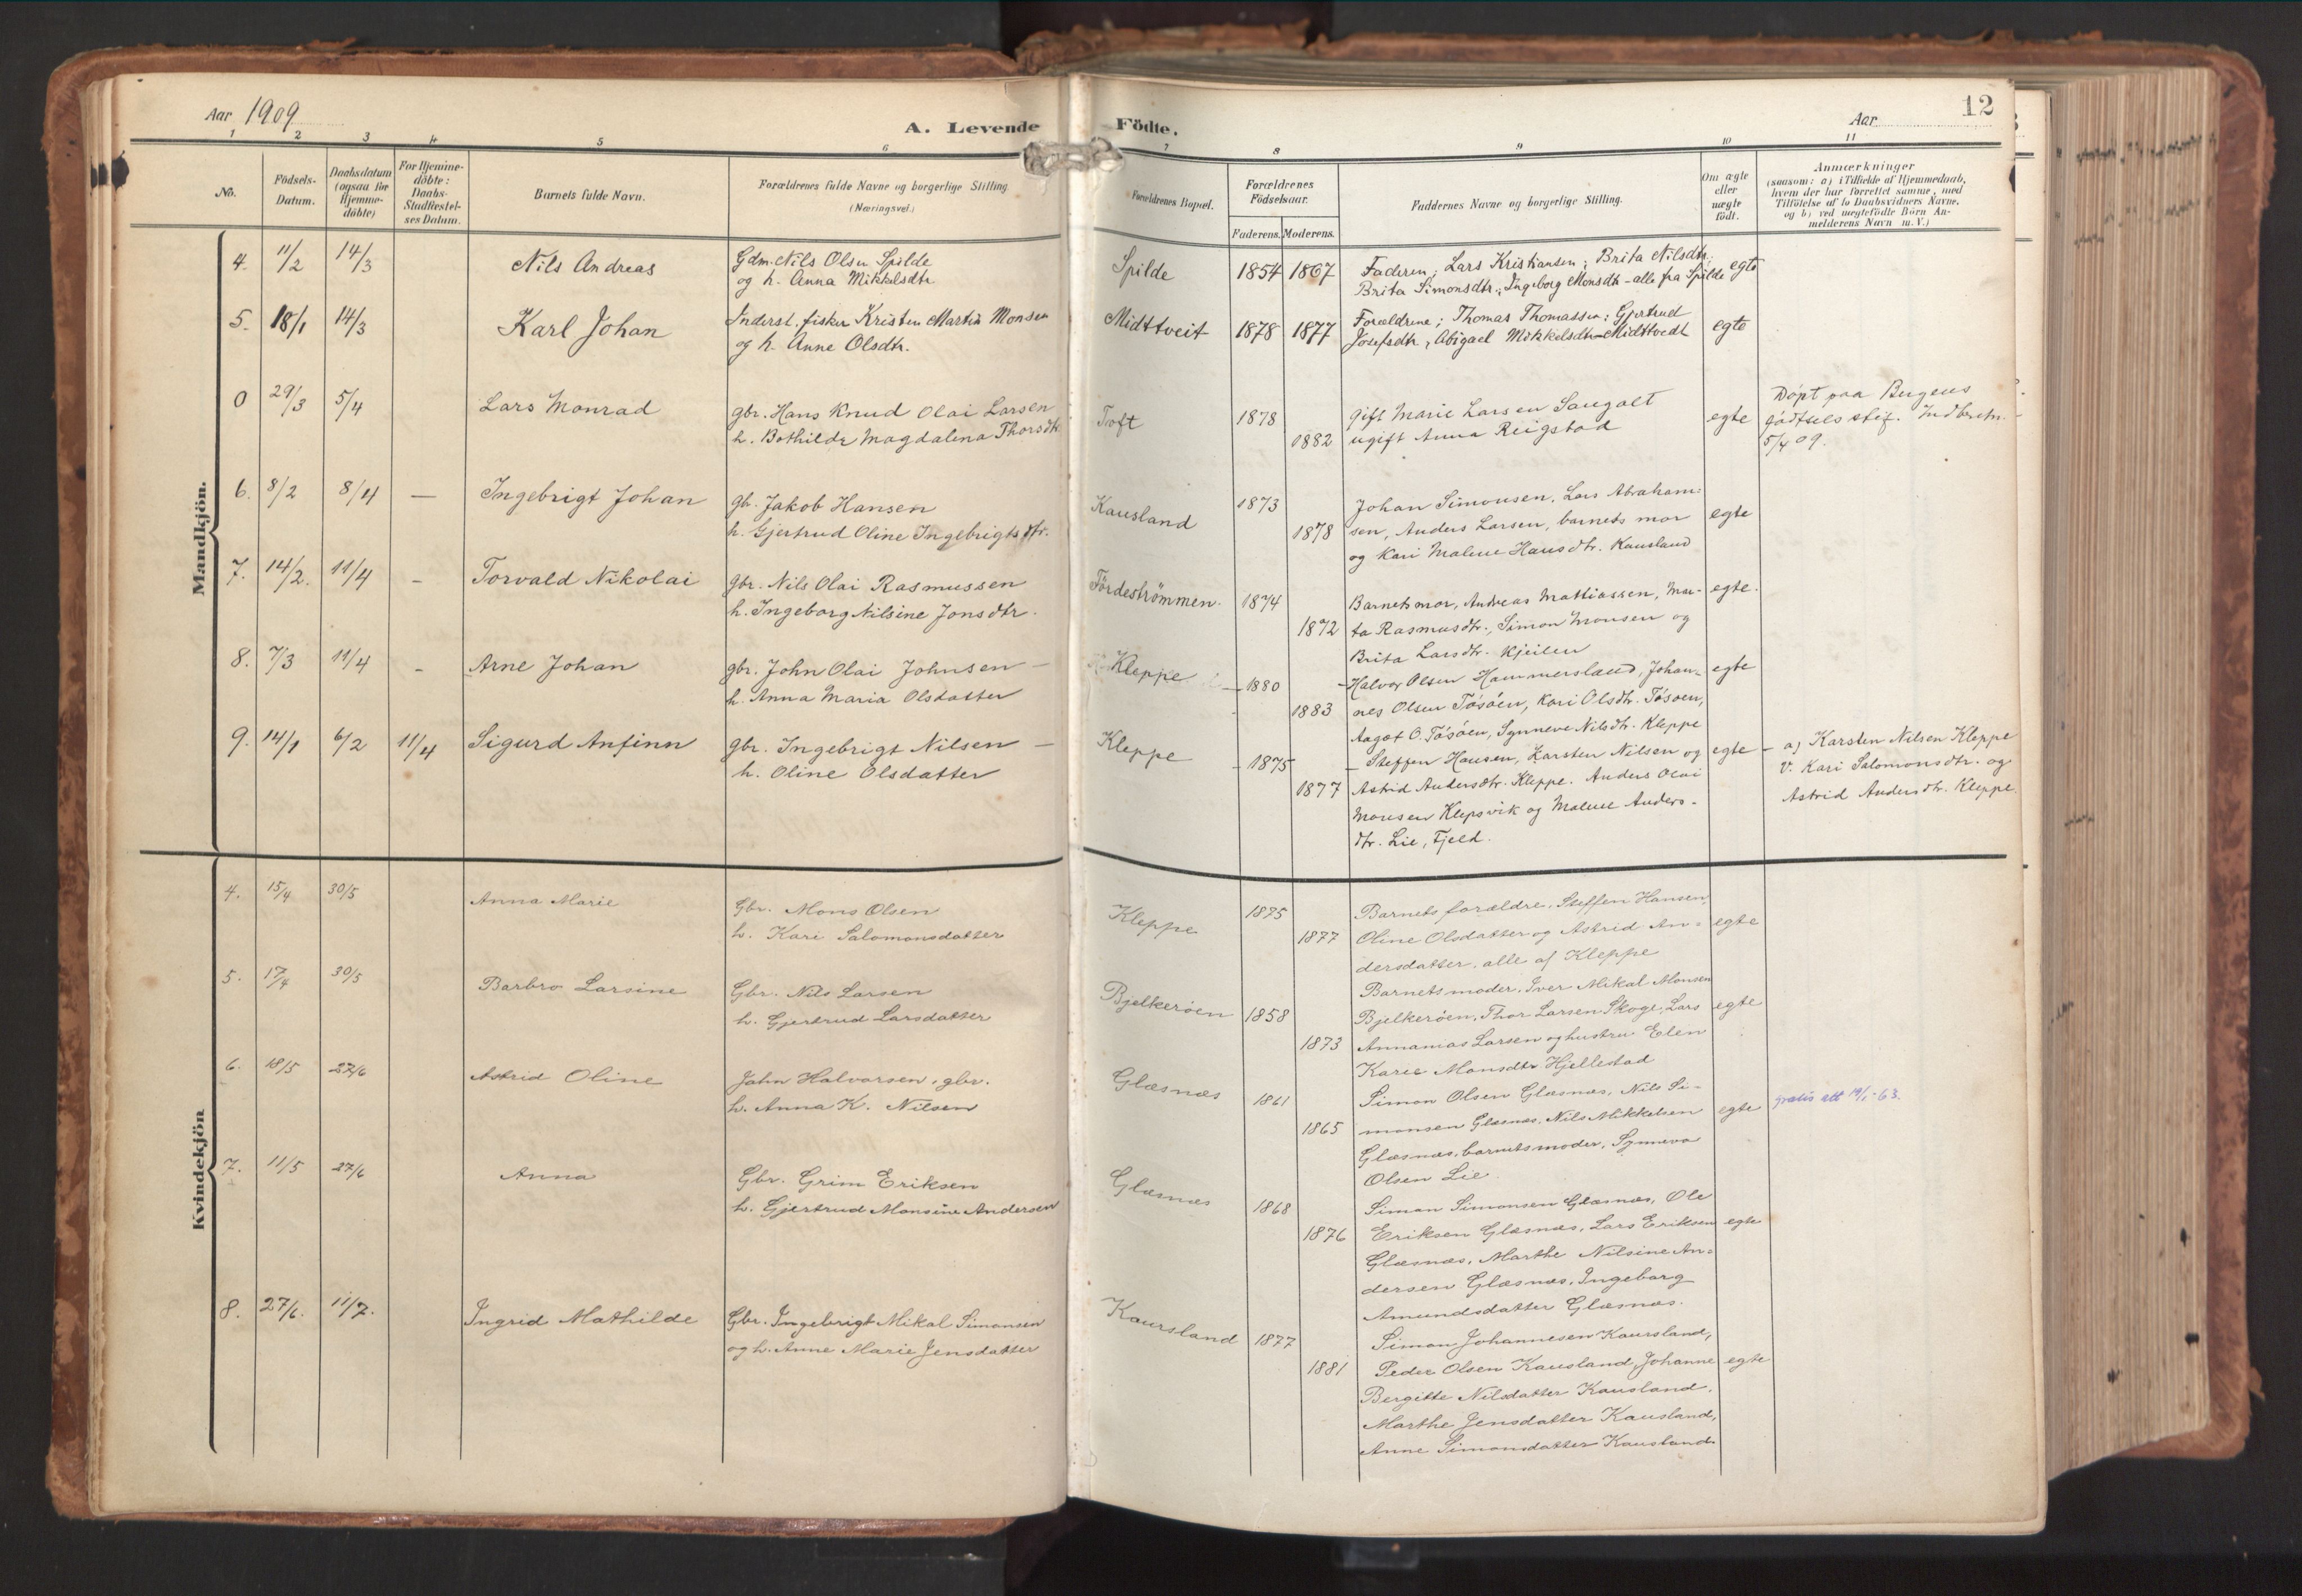 Aar 1909
A. Levende Födte.
Aar
12
1 2 3 4 5 6 7 8 9 10 11
No.
Födsels-Datum.
Daabsdatum (ogsaa for Hjemme-döbte)
For Hjemme-döbte: Daabs-Stadfæstel-ses Datum.
Barnets fulde Navn.
Forældrenes fulde Navne og borgerlige Stilling (Næringsvei.)
Forældrenes Bopæl.
Forældrenes Födselsaar.
Faderens. Moderens.
Faddernes Navne og borgerlige Stilling.
Om ægte eller uægte födt.
Anmærkninger
(saasom: a) i Tilfælde af Hjemmedaab,
hvem der har forrettet samme, med
Tilföielse af to Daabsvidners Navne,
og b) ved uægtefödte Börn An-
melderens Navn m. V.)
Mandkjön.
4. 11/2 14/3 Nils Andreas
Gdm. Nils Olsen Spilde
og h. Anna Mikkelsdtr
Spilde 1854 1867
Faderen; Lars Kristiansen; Brita Nilsdtr;
Brita Simonsdtr.; Ingeborg Monsdtr - alle fra Spilde
egte
5. 18/1 14/3 Karl Johan
Inderst. fisker Kristen Martin Monsen
og h. Anne Olsdtr.
Midttveit 1878 1877
Forældrene; Thomas Thomassen; Gjertrud
Josefsdtr, Abigael Mikkelsdtr - Midttvedt
egte
0 29/3 5/4 Lars Monrad
gbr. Hans Knud Olai Larsen
h. Bothilde Magdalena Thorsdtr.
Toft 1878 1882
gift Marie Larsen Sangolt
ugift Anna Reigstad
egte
Døpt paa Bergens
fødselsstif. Indberetn.
5/4 09.
6. 8/2 8/4 — Ingebrigt Johan
gb. Jakob Hansen
h. Gjertrud Oline Ingebrigtsdtr.
Kausland 1873 1878
Johan Simonsen, Lars Abraham-
sen, Anders Larsen, barnets mor
og Kari Malene Hansdtr. Kausland
egte
7. 14/2. 11/4 - Torvald Nikolai
gbr. Nils Olai Rasmussen
h. Ingeborg Nilsine Jonsdtr.
Førdeströmmen. 1874 1872
Barnets mor, Andreas Mattiassen, Mar-
ta Rasmusdtr., Simon Monsen og
Brita Larsdtr. Kjeilen
egte.
8. 7/3 11/4 - Arne Johan
gbr. John Olai Johnsen —
h. Anna Maria Olsdatter
Kleppe — 1880 1883
-Halvor Olsen Hammersland, Johan-
nes Olsen Tøsøen, Kari Olsdtr. Tøsøen,
Aagot O. Tøsøen, Synneve Nilsdtr. Kleppe
egte
9. 14/1 6/2 11/4 Sigurd Anfinn
gbr. Ingebrigt Nilsen —
h. Oline Olsdatter
Kleppe - 1875 1877
- Steffen Hansen, Karsten Nilsen og
Astrid Andersdtr. Kleppe. Anders Olai
Monsen Klepsvik og Malene Anders-
dtr. Lie, Fjeld.
egte -
a) Karsten Nilsen Kleppe
V. Kari Salomonsdtr. og
Astrid Andersdtr. Kleppe.
Kvindekjön
4. 15/4 30/5 Anna Marie
Gbr. Mons Olsen
h. Kari Salomonsdatter
Kleppe 1875 1877
Barnets forældre, Steffen Hansen,
Oline Olsdatter og Astrid An-
dersdatter, alle af Kleppe
egte
5. 17/4 30/5 Barbro Larsine
Gbr. Nils Larsen
h. Gjertrud Larsdatter
Bjelkeröen 1858 1873
Barnets moder, Iver Mikal Monsen
Bjelkeröen, Thor Larsen Skoge, Lars
Annanias Larsen og hustru Elen
Karee Monsdtr Hjellestad
egte
6. 18/5 27/6 Astrid Oline
John Halvorsen, gbr.
h. Anna K. Nilsen
Glæsnæs 1861 1865
Simon Olsen Glæsnæs, Nils Si-
monsen Glæsnæs, Nils Mikkelsen
Glæsnæs, barnets moder, Synneva
Olsen Lie
egte
gratis att 19/1-63.
7. 11/5 27/6 Anna
Gbr. Grim Eriksen
h. Gjertrud Monsine Andersen
Glæsnæs 1868 1876
Simon Simonsen Glæsnæs, Ole
Eriksen Glæsnæs, Lars Eriksen
Glæsnæs, Marthe Nilsine An-
dersen Glæsnæs, Ingeborg
Amundsdatter Glæsnæs.
egte
8. 27/6. 11/7. Ingrid Mathilde
Gbr. Ingebrigt Mikal Simonsen
og h. Anne Marie Jensdatter
Kaursland 1877 1881
Simon Johannesen Kaursland,
Peder Olsen Kausland, Johanne
Bergitte Nilsdatter Kausland,
Marthe Jensdatter Kausland,
Anne Simonsdatter Kausland.
egte